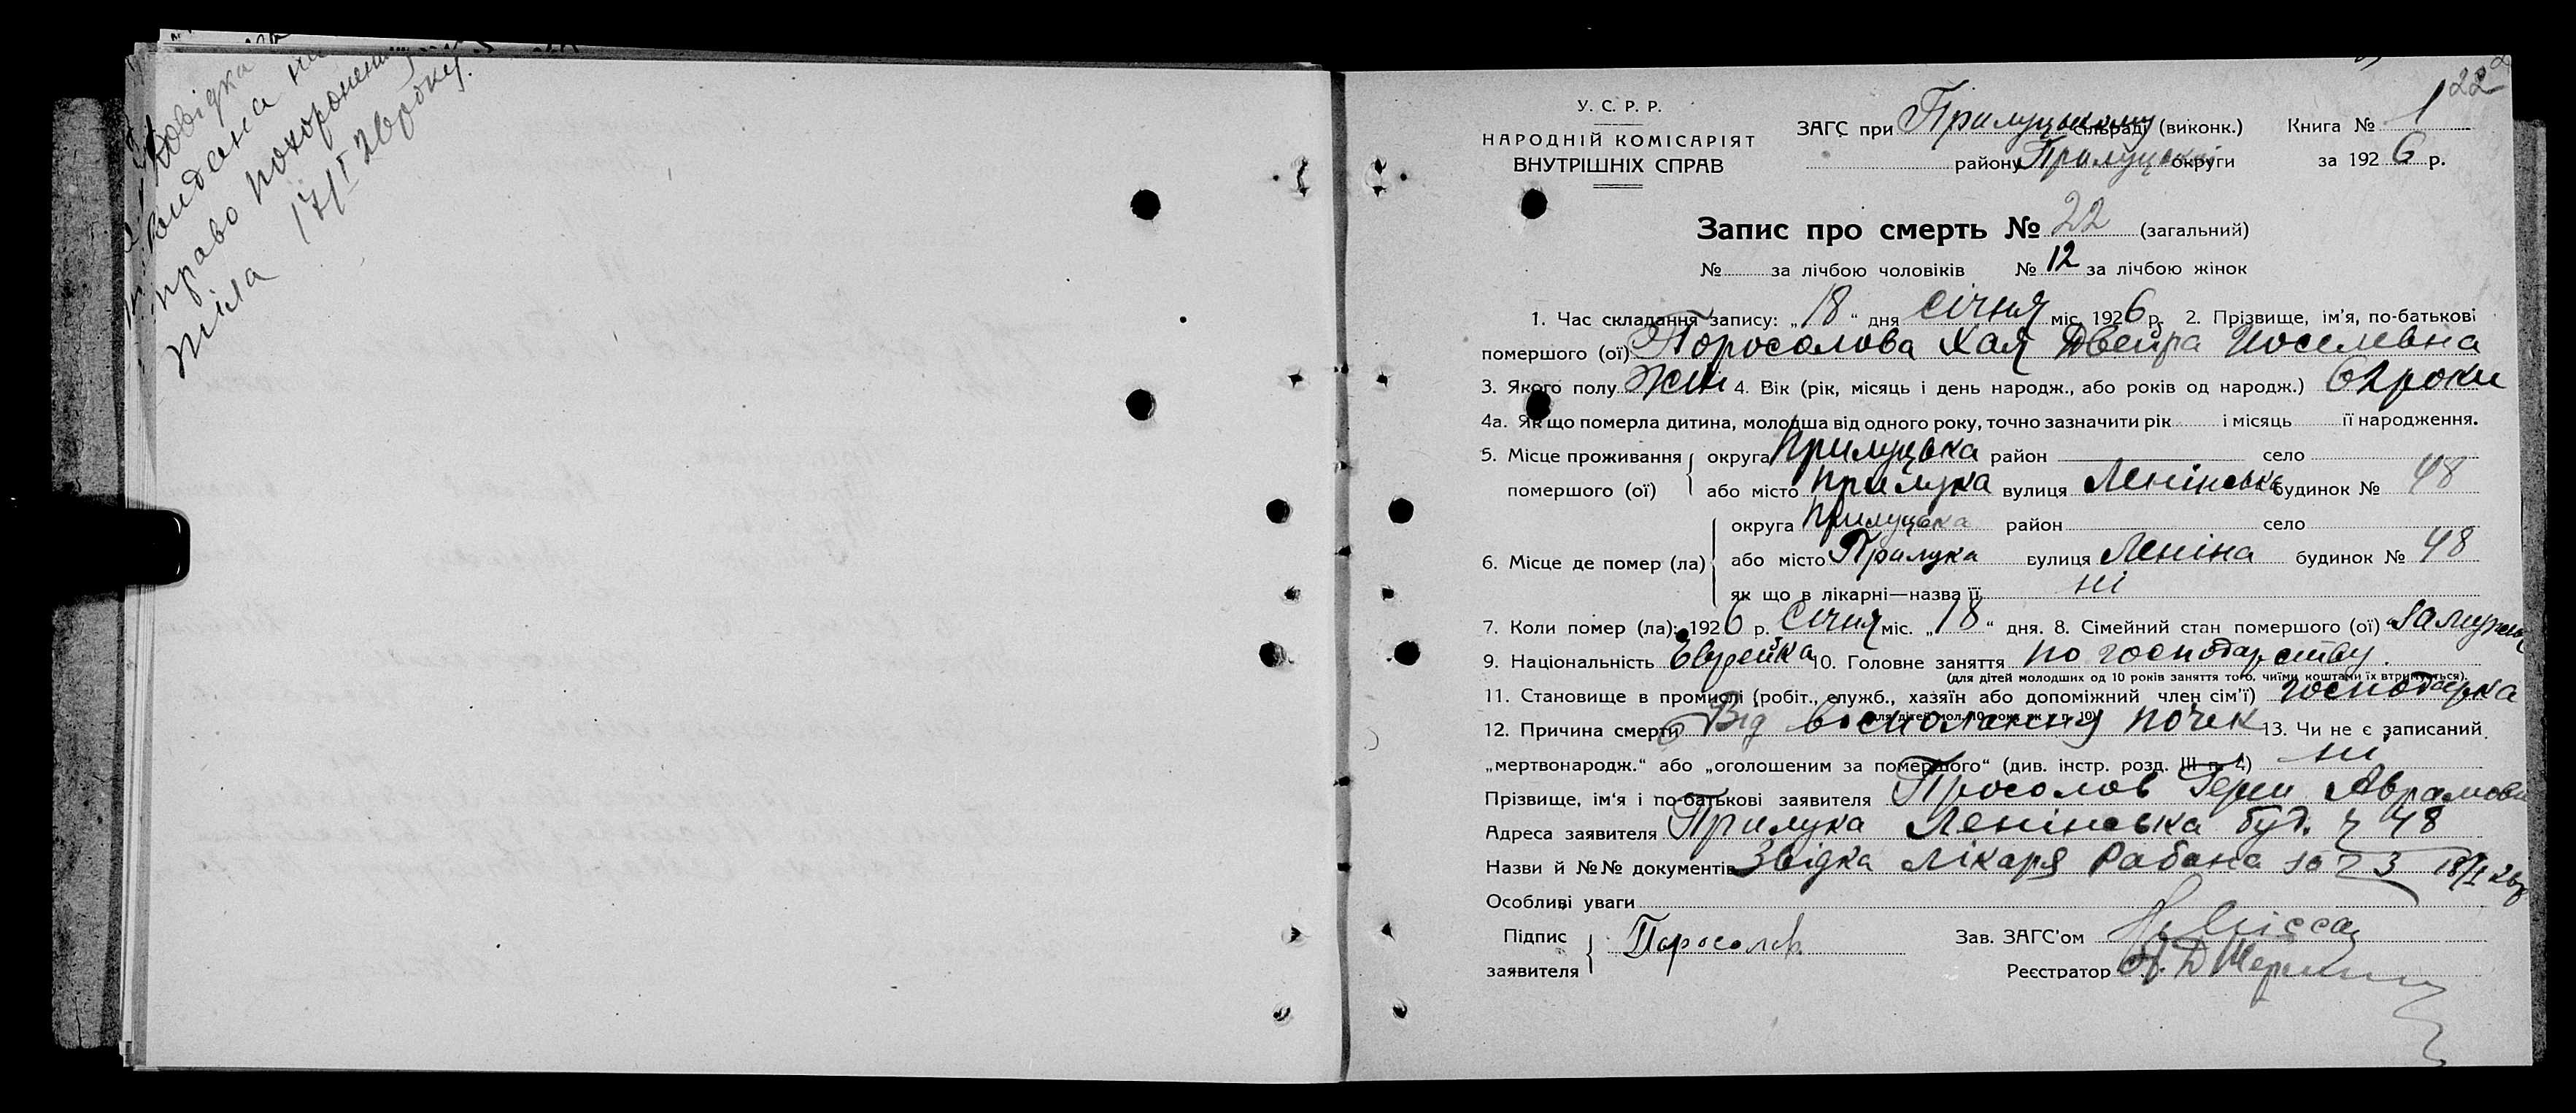 Довідка
видана на
право похоронення
тіла 17/I 26 року.
22
У. С. Р. Р.
НАРОДНІЙ КОМІСАРІЯТ
ВНУТРІШНІХ СПРАВ
ЗАГС при Прилуцькому сільраді (виконк.) Книга № 1
району Прилуцької округи за 1926 р.
Запис про смерть № 22 (загальний)
№ за лічбою чоловіків № 12 за лічбою жінок
1. Час складання запису: „18“ дня січня міс. 1926 р. 2. Прізвище, ім’я, по-батькові
помершого (ої) Поросолова Хая Двейра Иоселевна
3. Якого полу Жін 4. Вік (рік, місяць і день народж., або років од народж.) 62 роки
4а. Як що померла дитина, молодша від одного року, точно зазначити рік і місяць її народження.
5. Місце проживання округа Прилуцька район село
помершого (ої) або місто Прилука вулиця Ленінськ будинок № 48
округа Прилуцька район село
6. Місце де помер (ла) або місто Прилука вулиця Леніна будинок № 48
як що в лікарні—назва її ні
7. Коли помер (ла): 1926 р. Січня міс. „18“ дня. 8. Сімейний стан помершого (ої) Замужн
9. Національність Еврейка 10. Головне заняття по господарству.
(для дітей молодших од 10 років заняття того, чиїми коштами їх втримується).
11. Становище в промислі (робіт., служб., хазяїн або допоміжний член сім’ї) господарка
(для дітей мол. 10 рок. як в п. 10)
12. Причина смерти Від восполенну почек 13. Чи не є записаний
„мертвонародж.“ або „оголошеним за помершого“ (див. інстр. розд. III п. 4) ні
Прізвище, ім‘я і по-батькові заявителя Просолов Герш Аврамови
Адреса заявителя Прилука Ленінська буд. ч 48
Назви й №№ документів Звідка лікаря Рабана за ч 3 18/I 26р
Особливі уваги
Підпис Поросолов Зав. ЗАГС’ом
заявителя Реєстратор